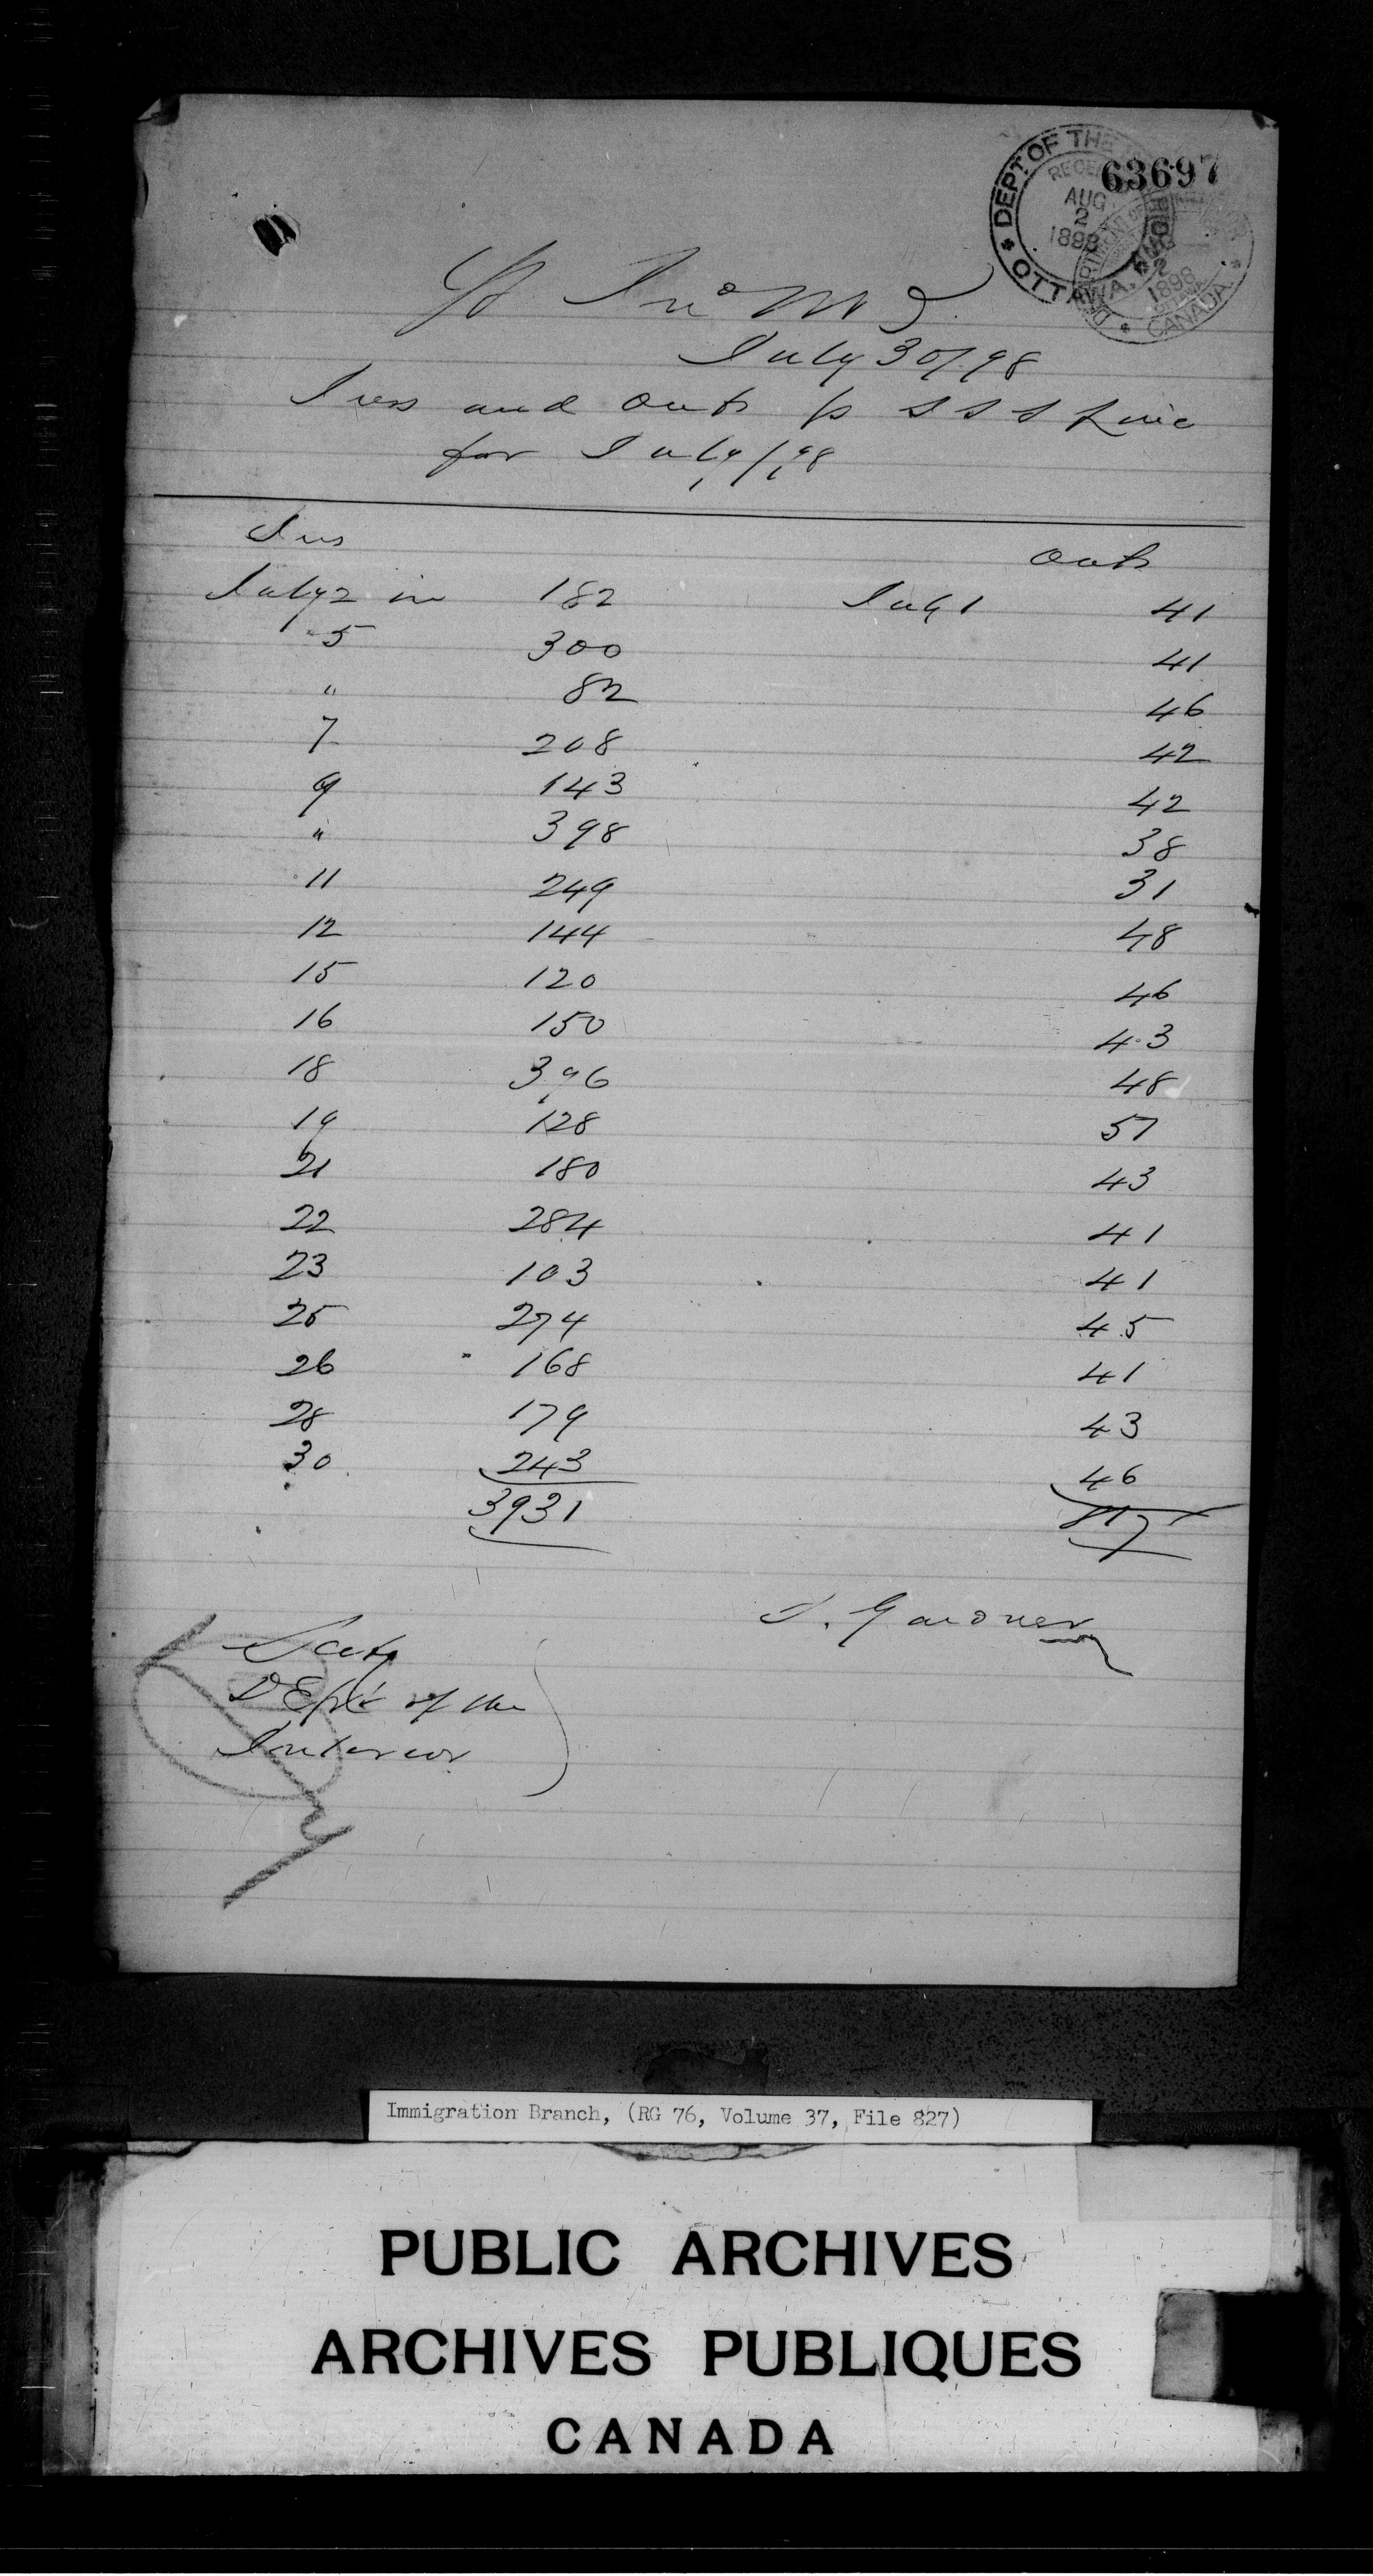 63697
DEPT OF THE
RECEIVED
AUG
2
1898
OTTAWA.
2
1898
CANADA
St Jno N B.
July 30/98
Ins and Outs p S S S Line
for July/98
Ins Outs
July 2 in 182 July 1 41
5 300 41
" 82 46
7 208 42
9 143 42
" 398 38
11 249 31
12 144 48
15 120 46
16 150 43
18 396 48
19 128 51
21 180 43
22 284 41
23 103 41
25 274 45
26 168 41
28 179 43
30 243 46
3931 817
S. Gardner
Secty
DEpt of the
Interior
Immigration Branch, (RG 76, Volume 37, File 827)
PUBLIC ARCHIVES
ARCHIVES PUBLIQUES
CANADA